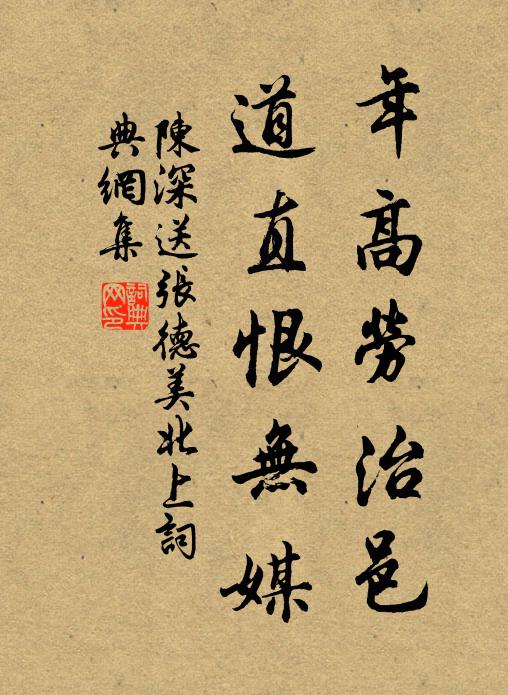 年高勞治邑
道直恨無媒
陳深送張德美北上詞
典網集
詞典網印